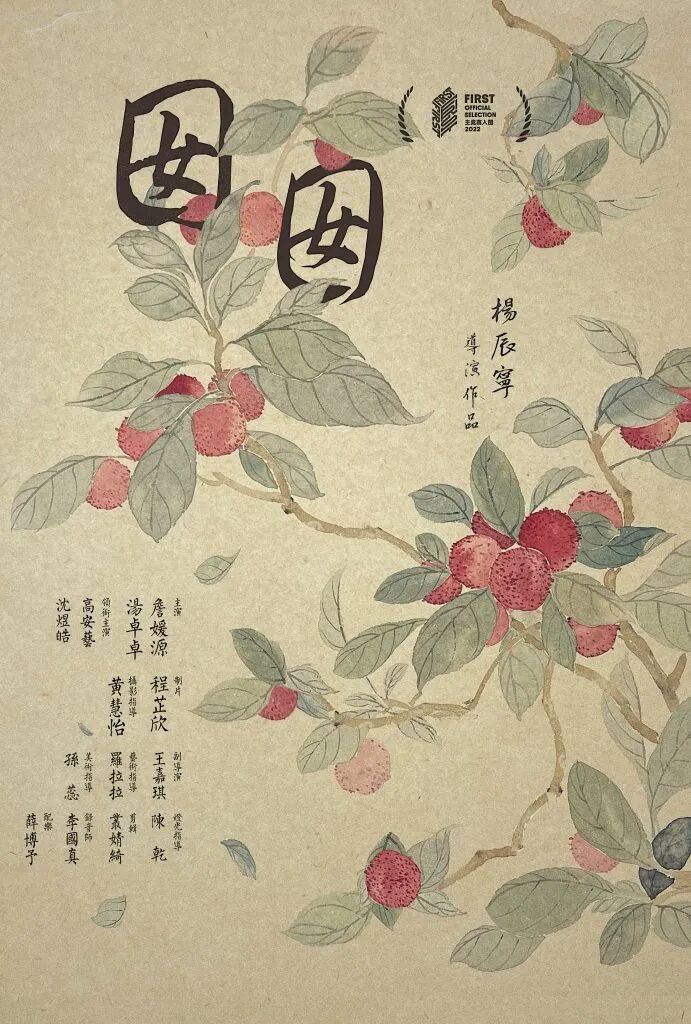 囡
囡
FIRST
OFFICIAL
SELECTION
主竞赛入围
2022
楊辰寧
導演作品
主演
詹媛源
湯卓卓
領銜主演
高安藝
沈煜皓
制片
程芷欣
攝影指導
黃慧怡
副導演
王嘉琪
藝術指導
羅拉拉
美術指導
孫蕊
燈光指導
陳乾
剪輯
叢婧綺
錄音師
李國真
配樂
薛博予